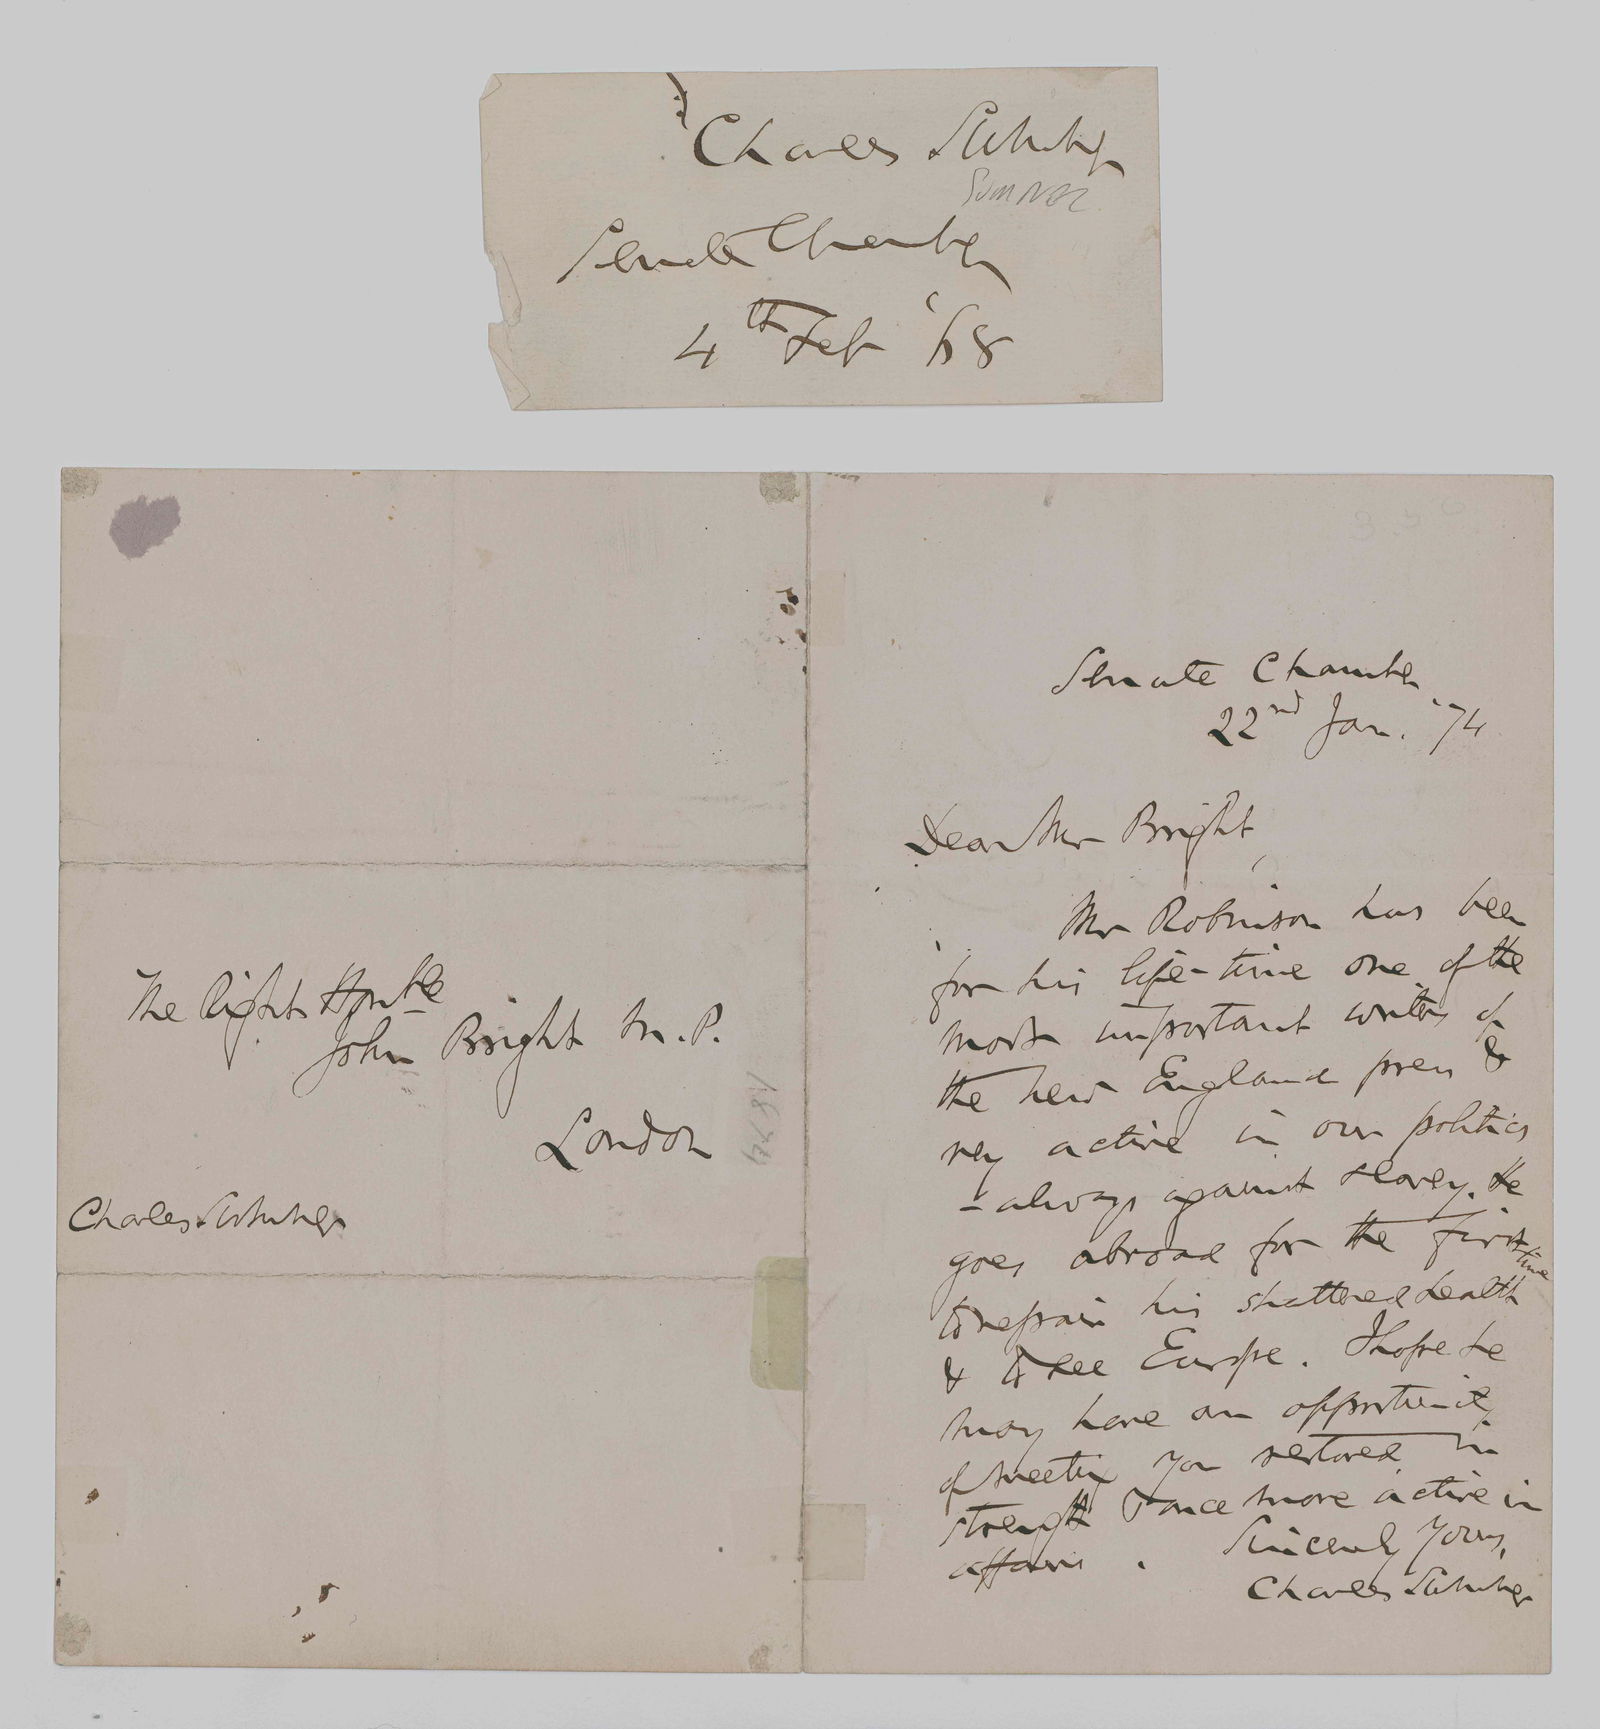 Charles Sumner
Sumner
Senate Chamber
4th Feb '68
The Right Honble
John Bright M.P.
London
Charles Sumner
1874
Senate Chamber
22nd Jan. '74
Dear Mr Bright,
Mr Robinson has been
for his life-time one of the
most important writers of
the New England press &
very active in our politics
- always against slavery. He
goes abroad for the first time
to repair his shattered health
& to see Europe. I hope he
may have an opportunity
of meeting you restored in
strength & once more active in
affairs.
Sincerely Yours,
Charles Sumner